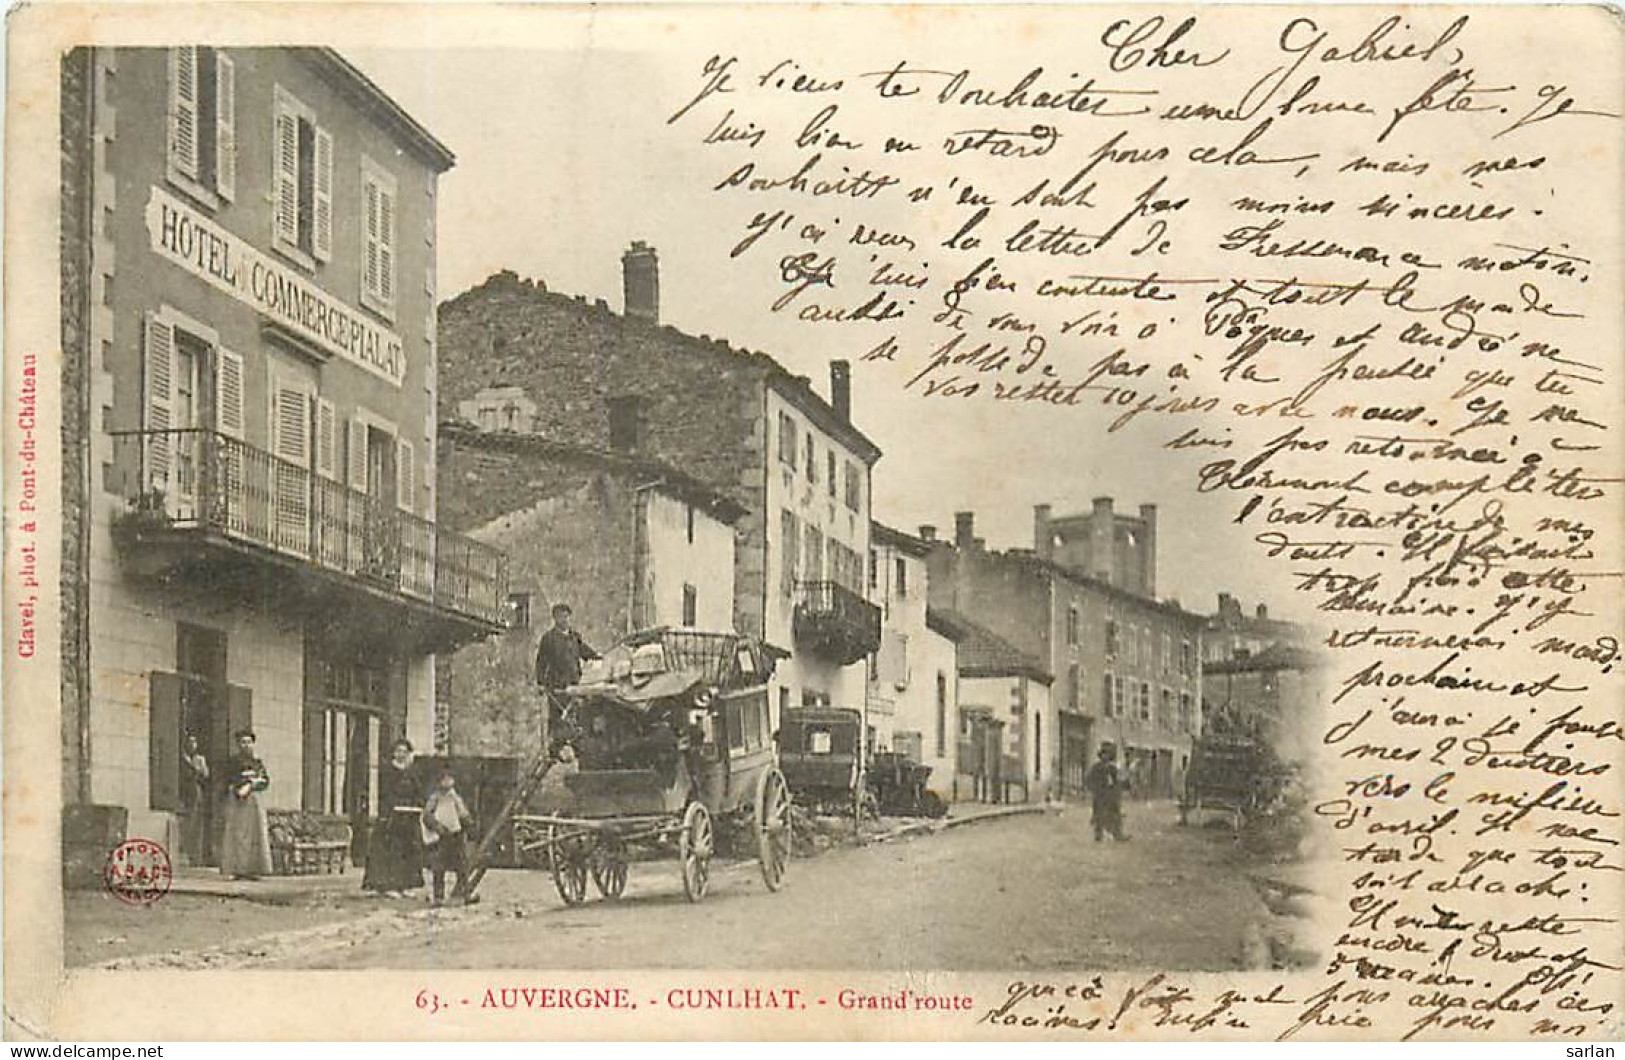 Cher Gabriel,
Je viens te souhaiter une bonne fête. Je
suis bien en retard pour cela, mais mes
souhaits n'en sont pas moins sincères.
J'ai reçu la lettre de matin.
suis bien contente et tout le monde
aussi de vous voir à Pâques et André ne
se possède pas à la pensée que tu
vas rester 10 jours avec nous. Je ne
suis pas retournée à
Clermont compléter
l'extraction de mes
dents. Il faisait
trop froid cette
semaine. J'y
retournerai mardi
prochain et
j'aurai je pense
mes 2 dentiers
vers le milieu
d'avril. Il me
tarde que tout
soit arraché.
Il me reste
encore 1 droite et
5 racines. Oh!
que çà fait mal pour arracher ces
racines! Enfin prie pour moi
HOTEL DU COMMERCE PIALAT
Clavel, phot. à Pont-du-Château
PHOT
A.B&C
NANCY
63. - AUVERGNE. - CUNLHAT. - Grand'route
delcampe.net
sarlan